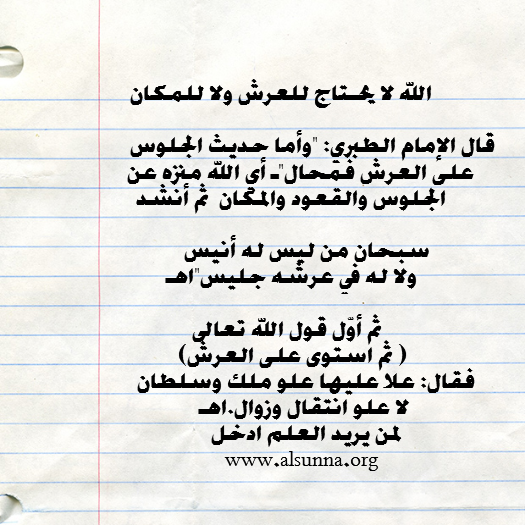 الله لا يحتاج للعرش ولا للمكان
قال الإمام الطبري: "وأما حديث الجلوس
على العرش فمحال"ـ أي الله منزه عن
الجلوس والقعود والمكان ثم أنشد
سبحان من ليس له أنيس
ولا له في عرشه جليس"اهـ
ثم أوّل قول الله تعالى
( ثم استوى على العرش)
فقال: علا عليها علو ملك وسلطان
لا علو انتقال وزوال.اهـ
لمن يريد العلم ادخل
www.alsunna.org